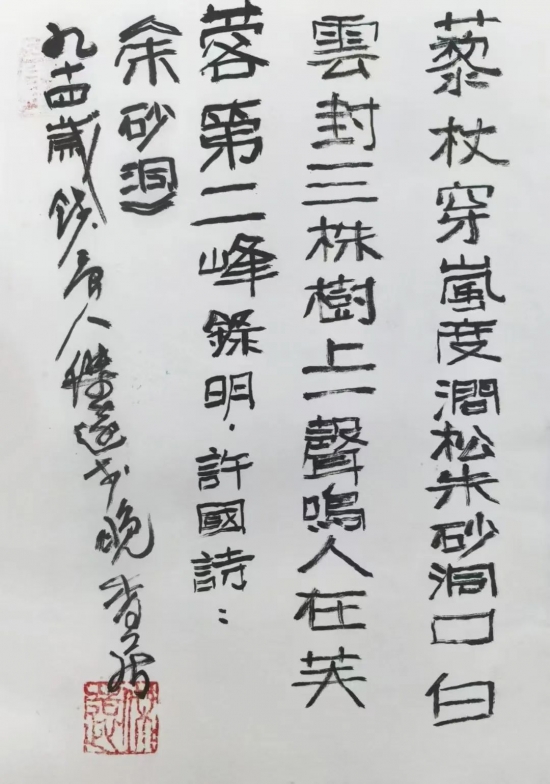 藜杖穿嵐度澗松朱砂洞口白
雲封三株樹上一聲鳴人在芙
蓉第二峰錄明·許國詩：
余砂洞》
九十四歲人傑书晚香居